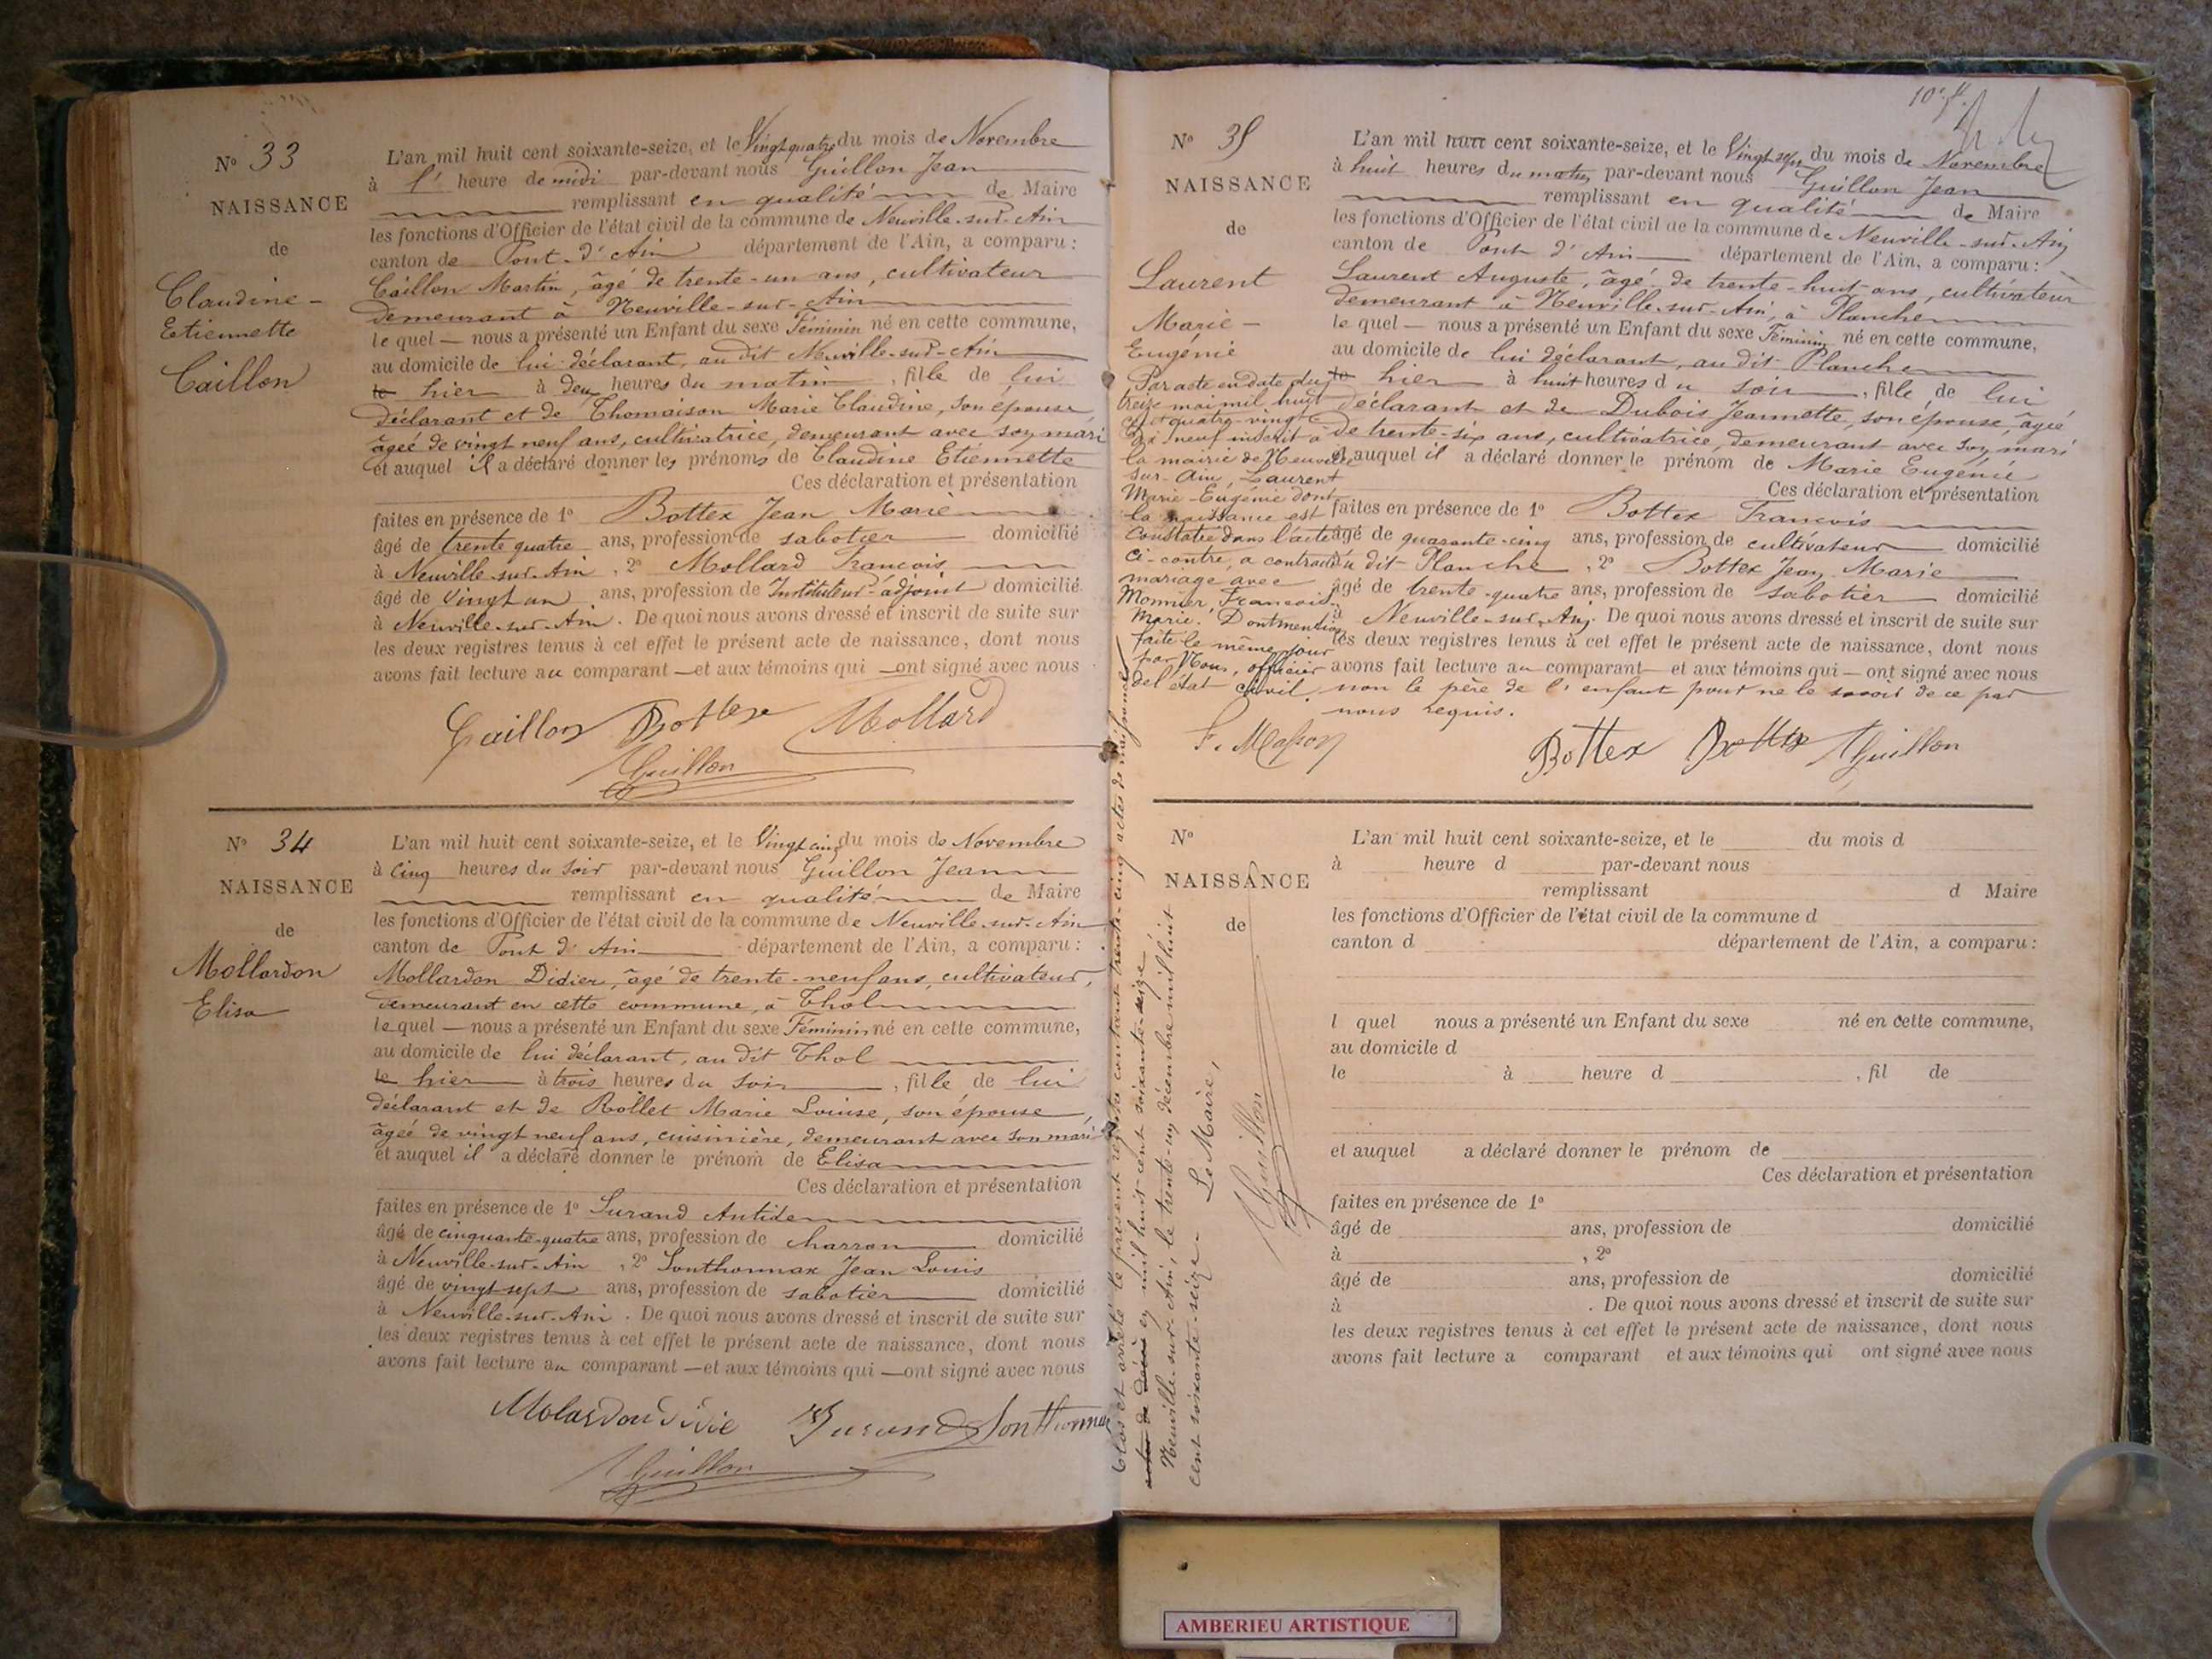 N° 33
NAISSANCE
de
Claudine-
Etiennette
Caillon
L'an mil huit cent soixante-seize, et le Vingt quatre du mois de Novembre
à l' heure de midi par-devant nous Guillon Jean
remplissant en qualité de Maire
les fonctions d'Officier de l'état civil de la commune de Neuville-sur-Ain
canton de Pont-d'Ain département de l'Ain, a comparu :
Caillon Martin, âgé de trente-un ans, cultivateur
demeurant à Neuville-sur-Ain
lequel — nous a présenté un Enfant du sexe Féminin né en cette commune,
au domicile de lui déclarant, au dit Neuville-sur-Ain
le hier à deux heures du matin, fille de lui
déclarant et de Thomaison Marie Claudine, son épouse,
âgée de vingt neuf ans, cultivatrice, demeurant avec son mari
et auquel il a déclaré donner les prénoms de Claudine Etiennette
Ces déclaration et présentation
faites en présence de 1° Bottex Jean Marie
âgé de trente quatre ans, profession de sabotier domicilié
à Neuville-sur-Ain, 2° Mollard François
âgé de vingt un ans, profession de Instituteur-adjoint domicilié
à Neuville-sur-Ain. De quoi nous avons dressé et inscrit de suite sur
les deux registres tenus à cet effet le présent acte de naissance, dont nous
avons fait lecture au comparant — et aux témoins qui — ont signé avec nous
Caillon Bottex Mollard
Guillon
N° 34
NAISSANCE
de
Mollardon
Elisa
L'an mil huit cent soixante-seize, et le Vingt cinq du mois de Novembre
à Cinq heures du soir par-devant nous Guillon Jean
remplissant en qualité de Maire
les fonctions d'Officier de l'état civil de la commune de Neuville-sur-Ain
canton de Pont d'Ain département de l'Ain, a comparu :
Mollardon Didier, âgé de trente-neuf ans, cultivateur,
demeurant en cette commune, à Thol
lequel — nous a présenté un Enfant du sexe Féminin né en cette commune,
au domicile de lui déclarant, au dit Thol
le hier à trois heures du soir, fille de lui
déclarant et de Rollet Marie Louise, son épouse,
âgée de vingt neuf ans, cuisinière, demeurant avec son mari
et auquel il a déclaré donner le prénom de Elisa
Ces déclaration et présentation
faites en présence de 1° Durand Antide
âgé de cinquante-quatre ans, profession de charron domicilié
à Neuville-sur-Ain, 2° Sonthonnax Jean Louis
âgé de vingt sept ans, profession de sabotier domicilié
à Neuville-sur-Ain. De quoi nous avons dressé et inscrit de suite sur
les deux registres tenus à cet effet le présent acte de naissance, dont nous
avons fait lecture au comparant — et aux témoins qui — ont signé avec nous
Molardon Didie Durand Sonthonnax
Guillon
N° 35
NAISSANCE
de
Laurent
Marie-
Eugénie
Par acte en date du
treize mai mil huit
cent quatre-vingt-
dix neuf inscrit à
la mairie de Neuville
sur-Ain, Laurent
Marie-Eugénie dont
la naissance est
constatée dans l'acte
ci-contre, a contracté
mariage avec
Monnier, François-
Marie. Dont mention
faite le même jour
par Nous, officier
de l'état civil.
F. Masson
L'an mil huit cent soixante-seize, et le Vingt sept du mois de Novembre
à huit heures du matin par-devant nous Guillon Jean
remplissant en qualité de Maire
les fonctions d'Officier de l'état civil de la commune de Neuville-sur-Ain
canton de Pont d'Ain département de l'Ain, a comparu :
Laurent Auguste, âgé de trente-huit ans, cultivateur
demeurant à Neuville-sur-Ain, à Planche
lequel — nous a présenté un Enfant du sexe Féminin né en cette commune,
au domicile de lui déclarant, au dit Planche
le hier à huit heures du soir, fille de lui
déclarant et de Dubois Jeannette, son épouse, âgée
de trente-six ans, cultivatrice, demeurant avec son mari
et auquel il a déclaré donner le prénom de Marie Eugénie
Ces déclaration et présentation
faites en présence de 1° Bottex François
âgé de quarante-cinq ans, profession de cultivateur domicilié
au dit Planche, 2° Bottex Jean Marie
âgé de trente-quatre ans, profession de sabotier domicilié
à Neuville-sur-Ain. De quoi nous avons dressé et inscrit de suite sur
les deux registres tenus à cet effet le présent acte de naissance, dont nous
avons fait lecture au comparant — et aux témoins qui — ont signé avec nous
non le père de l'enfant pour ne le savoir de ce par
nous requis.
Bottex Bottex Guillon
Clos et arrêté le présent registre contenant trente-cinq actes de naissance
en mil huit-cent soixante-seize
Neuville-sur-Ain, le trente-un décembre mil huit
cent soixante-seize. Le Maire,
Guillon
N°
NAISSANCE
de
L'an mil huit cent soixante-seize, et le du mois d
à heure d par-devant nous
remplissant d Maire
les fonctions d'Officier de l'état civil de la commune d
canton d département de l'Ain, a comparu :
l quel nous a présenté un Enfant du sexe né en cette commune,
au domicile d
le à heure d , fil de
et auquel a déclaré donner le prénom de
Ces déclaration et présentation
faites en présence de 1°
âgé de ans, profession de domicilié
à , 2°
âgé de ans, profession de domicilié
à . De quoi nous avons dressé et inscrit de suite sur
les deux registres tenus à cet effet le présent acte de naissance, dont nous
avons fait lecture a comparant et aux témoins qui ont signé avec nous
AMBERIEU ARTISTIQUE